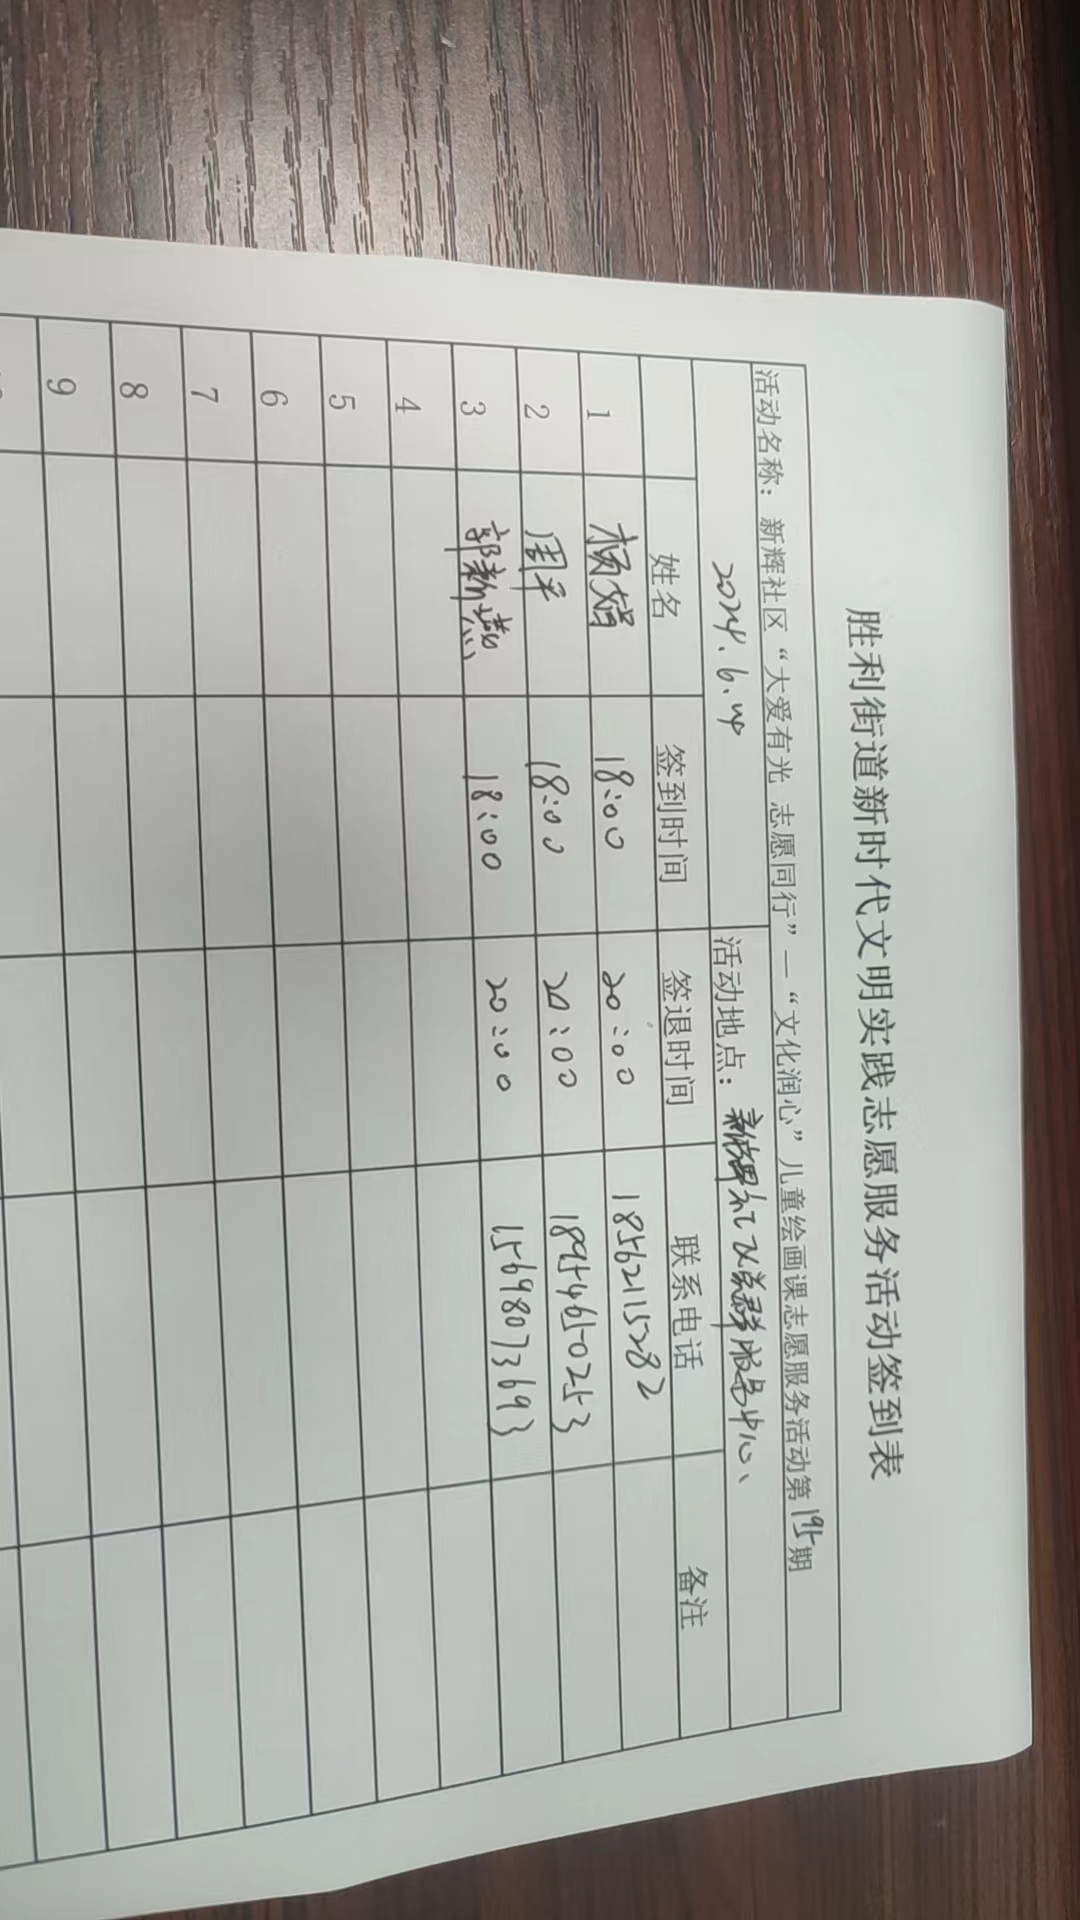 胜利街道新时代文明实践志愿服务活动签到表
活动名称：新辉社区“大爱有光 志愿同行”—“文化润心”儿童绘画课志愿服务活动第195期
2024.6.14 活动地点：新辉社区党群服务中心、
姓名 签到时间 签退时间 联系电话 备注
1 杨娟 18:00 20:00 18562115282
2 周平 18:00 20:00 18954650253
3 郭新燕 18:00 20:00 15698073693
4
5
6
7
8
9